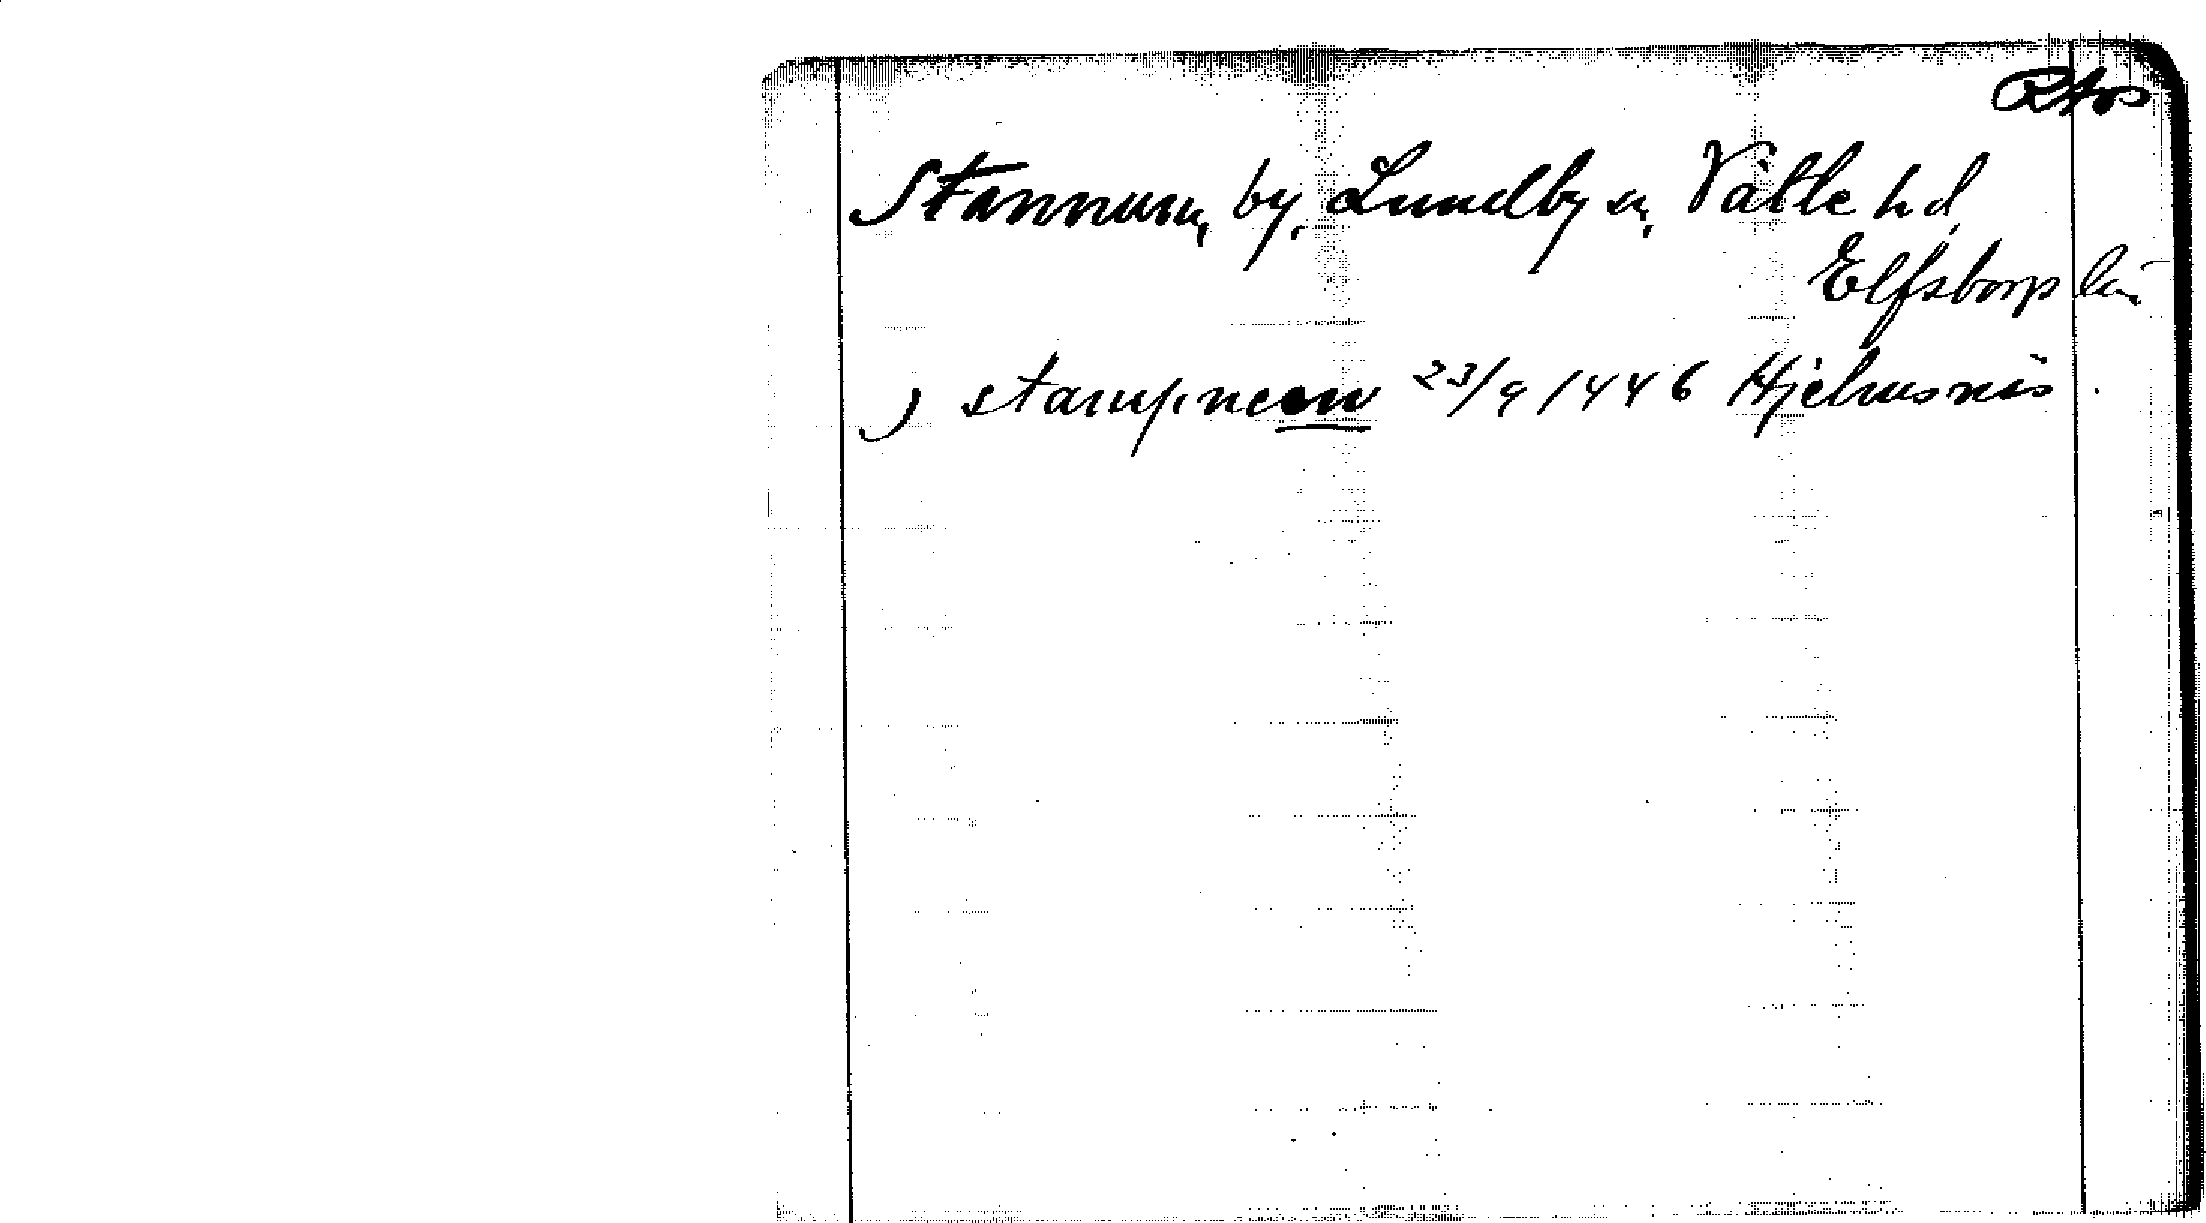 Rtos
Stannum, by, Lundby sn, Vätle hd,
Elfsborgs län
) stampneem 23/9 1446 Hjelmsnäs.